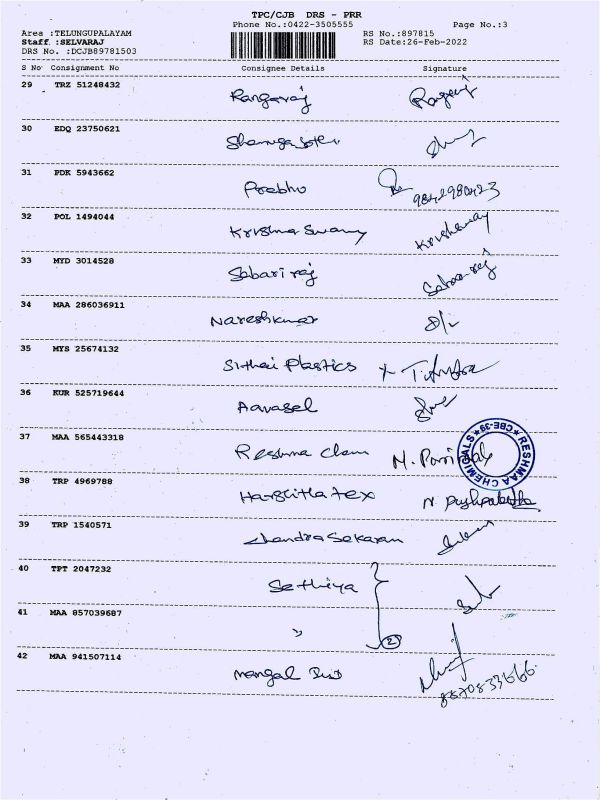 TPC/CJB DRS - PRR
Phone No.:0422-3505555 Page No.:3
Area :TELUNGUPALAYAM RS No.:897815
Staff :SELVARAJ RS Date:26-Feb-2022
DRS No. :DCJB89781503
S No Consignment No Consignee Details Signature
29 TRZ 51248432 Rangaraj Rangaraj
30 EDQ 23750621
31 PDK 5943662 Prabhu
9842980423
32 POL 1494044 Krishna Swamy
33 MYD 3014528 Sabari raj
34 MAA 286036911 Nareshkumar S/-
35 MYS 25674132 Sithai Plastics
36 KUR 525719644 Aavasel
37 MAA 565443318 Reshma Chem
RESHMAA CHEMICALS ★ CBE-39 ★
38 TRP 4969788 N. Pushpalatha
39 TRP 1540571 Chandra Sekaran
40 TPT 2047232 Sathiya
41 MAA 857039687 " 2
42 MAA 941507114 Mangal